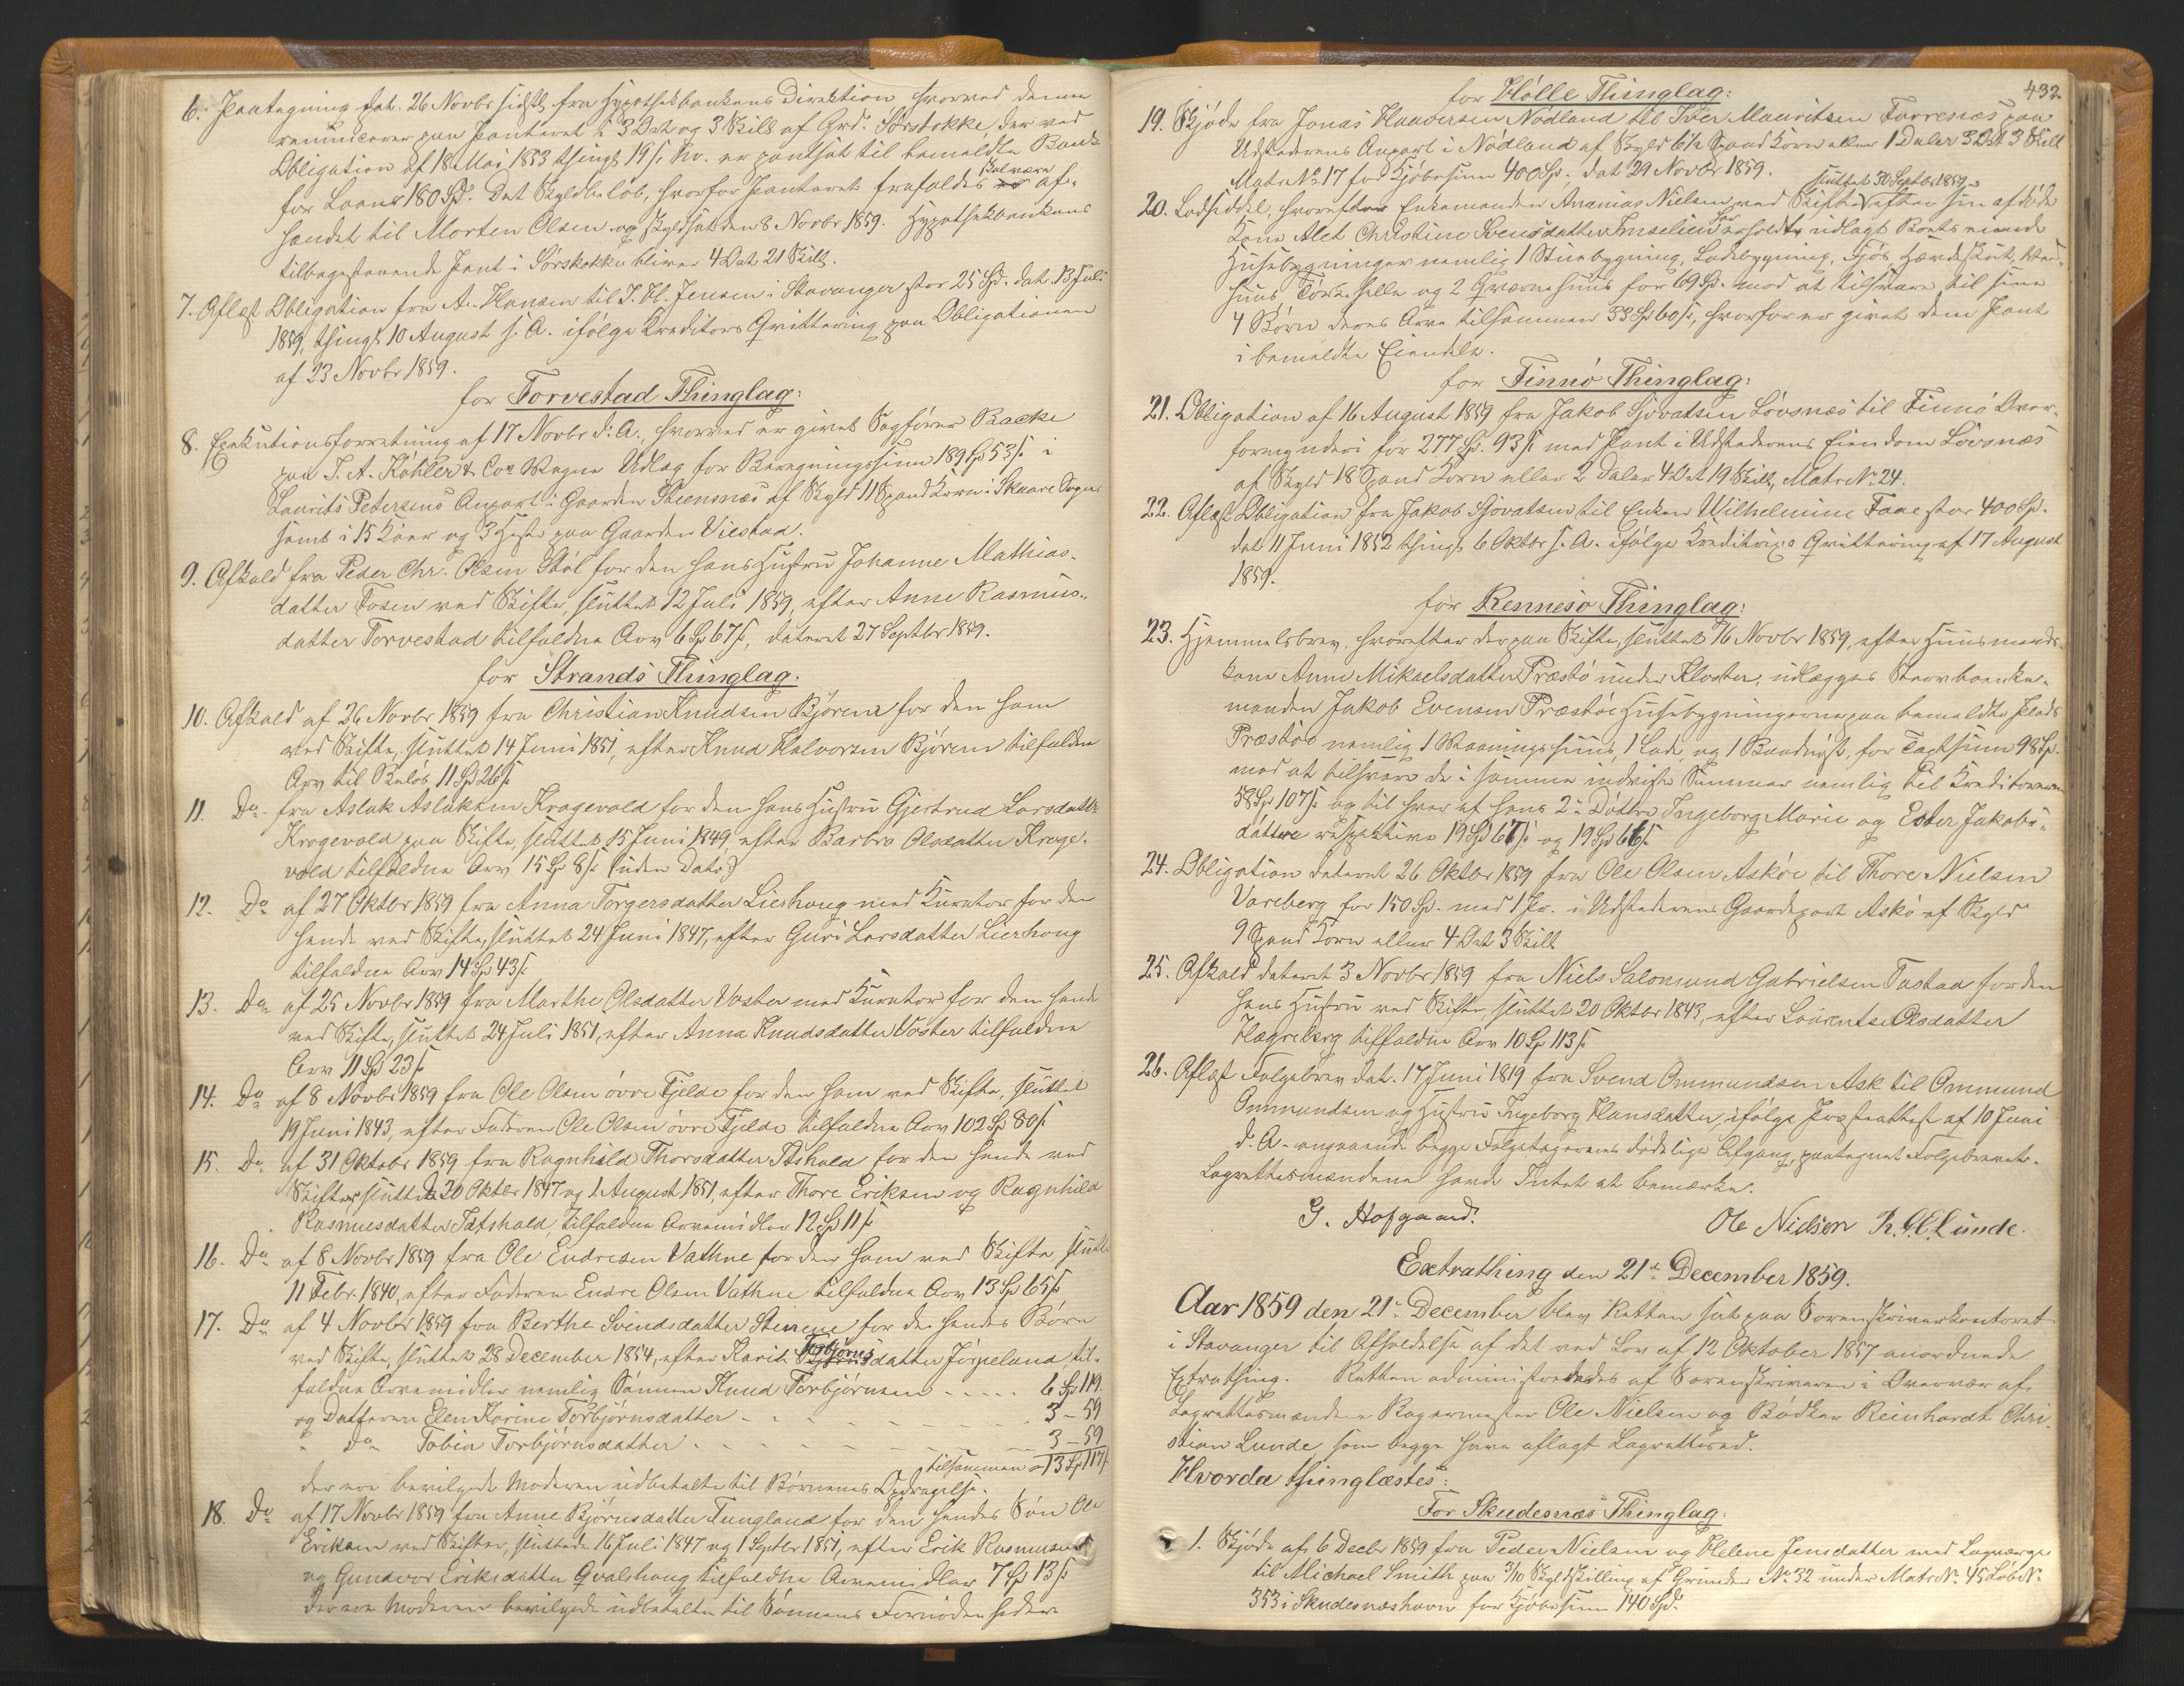 6. Paategning dat. 26 Novbr sidstl. fra Hypothekbankens Direktion hvorved denne
renuncerer paa Panteret i 3 Ort og 3 Skill af Grd. Sørstokke, der ved
Obligation af 18 Mai 1853 thingl. 19 s. Hv. er pantsat til bemeldte Bank
for Laan 180 Spd. Det Skyldbeløb, hvorfor Panteret frafaldes skal være af-
hændet til Morten Olsen og skyldsat den 8 Novbr 1859. Hypothekbankens
tilbagestaaende Pant i Sørstokke bliver 4 Ort 21 Skill.
7. Aflæst Obligation fra A. Hansen til J. H. Jensen i Stavanger stor 25 Spd. dat. 13 Juli
1859, thingl. 10 August s. A. ifølge Kreditors Qvittering paa Obligationen
af 23 Novbr 1859.
for Torvestad Thinglag:
8. Exekutionsforretning af 17 Novbr d. A., hvorved er givet Sagfører Racke
paa J. A. Köhler & Co's Vegne Udlag for Beregningssum 189 Sp 53 s. i
Laurits Petersens Anpart i Gaarden Steensnæs af Skyld 11 Spand Korn i Skaare Sogn
samt i 15 Køer og 3 Heste paa Gaarden Viestad.
9. Afkald fra Peder Chr. Olsen Støl for den hans Hustru Johanne Mathias-
datter Fosen ved Skifte, sluttet 12 Juli 1859, efter Anne Rasmus-
datter Torvestad tilfaldne Arv 6 Sp 67 s., dateret 27 Septbr 1859.
for Strands Thinglag.
10. Afkald af 26 Novbr 1859 fra Christian Knudsen Bjøreim for den ham
ved Skifte, sluttet 14 Juni 1851, efter Knud Halvorsen Bjøreim tilfaldne
Arv til Beløb 11 Sp 26 s.
11. Do fra Aslak Aslaksen Krogevold for den hans Hustru Gjertrud Larsdatter
Krogevold paa Skifte, sluttet 15 Juni 1849, efter Barbro Olsdatter Kroge-
vold tilfaldne Arv 15 Sp 8 s. (uden Dato)
12. Do af 27 Oktbr 1859 fra Anna Torgersdatter Lierhaug med Kurator for den
hende ved Skifte, sluttet 24 Juni 1847, efter Guri Larsdatter Lierhoug
tilfaldne Arv 14 Sp 43 s.
13. Do af 25 Novbr 1859 fra Marthe Olsdatter Voster med Kurator for den hende
ved Skifte, sluttet 24 Juli 1851, efter Anna Knudsdatter Voster tilfaldne
Arv 11 Sp 23 s.
14. Do af 8 Novbr 1859 fra Ole Olsen øvre Tjelde for den ham ved Skifte, sluttet
19 Juni 1843, efter Faderen Ole Olsen øvre Tjelde tilfaldne Arv 102 Sp 80 s.
15. Do af 31 Oktobr 1859 fra Ragnhild Thorsdatter for den hende ved
Skifter, sluttede 20 Oktbr 1847 og 1 August 1851, efter Thore Eriksen og Ragnhild
Rasmusdatter tilfaldne Arvemidler 12 Sp 11 s.
16. Do af 8 Novbr 1859 fra Ole Endresen Vathne for den ham ved Skifte, sluttet
11 Febr. 1840, efter Faderen Endre Olsen Vathne tilfaldne Arv 13 Sp 65 s.
17. Do af 4 Novbr 1859 fra Berthe Svendsdatter for de hendes Børn
ved Skifte, sluttet 28 December 1854, efter Karik Torbjørnsdatter Jørpeland til-
faldne Arvemidler nemlig Sønnen Knud Torbjørnsen - - - - - 6 Sp 119.
og Datteren Elen Karine Torbjørnsdatter - - - - - - 3 - 59
" do Tobia Torbjørnsdatter - - - - - - 3 - 59
tilsammen = 13 Sp 117 s.
der ere bevilgede Moderen udbetalte til Børnenes Opdragelse.
18. Do af 17 Novbr 1859 fra Anne Bjørnsdatter Tungland for den hendes Søn Ole
Eriksen ved Skifter, sluttede 16 Juli 1847 og 1 Septbr 1851, efter Erik Rasmussen
og Gundvor Eriksdatter Qvalshoug tilfaldne Arvemidler 7 Sp 13 s.
der ere Moderen bevilgede udbetalte til Sønnens Fornødenheder.
432
for Hølle Thinglag:
19. Skjøde fra Jonas Haaversen Nødland til Iver Mauritsen Forresnæs paa
Udstederens Anpart i Nødland af Skyld 6 1/2 Spand Korn eller 1 Daler 3 Ort 3 Skill
Matr No 17 for Kjøbesum 400 Sp. dat 29 Novbr 1859.
sluttet 30 Septbr 1859
20. Lodseddel, hvorefter Enkemanden Ananias Nielsen ved Skifte efter sin afdøde
Kone Alet Christine Svensdatter Imselien har erholdt udlagt Boets eiende
Husebygninger nemlig 1 Stuebygning, Ladebygning, Fjøs,
huus, og 2 Qværnehuus for 69 Sp. mod at tilsvare til sine
4 Børn deres Arv tilsammen 33 Sp 60 s., hvorfor er givet dem Pant
i bemeldte Eiendele.
for Finnø Thinglag:
21. Obligation af 16 August 1859 fra Jakob Sjovatsen Løvsnæs til Finnø Over-
formynderi for 277 Sp. 93 s. med Pant i Udstederens Eiendom Løvsnæs
af Skyld 18 Spand Korn eller 2 Daler 4 Ort 19 Skill, Matr No 24.
22. Aflæst Obligation fra Jakob Sjovatsen til Enken Wilhelmine Faae stor 400 Sp.
dat 11 Juni 1852 thingl. 6 Oktbr s. A. ifølge Kreditrixs Qvittering af 17 August
1859.
for Rennesø Thinglag:
23. Hjemmelsbrev, hvorefter der paa Skifte, sluttet 16 Novbr 1859, efter Huusmands-
kone Anne Mikaelsdatter Præstø under Kloster, udlægges Stervboenke-
manden Jakob Evensen Præstø Husebygningerne paa bemeldte Plads
Præstø nemlig 1 Vaaningshuus, 1 Lade, og 1 Baadnøst, for Taxtsum 98 Sp.
mod at tilsvare de i samme indviste Summer nemlig til Kreditorerne
58 Sp 107 s. og til hver af hans 2de Døttre Ingeborg Marie og Ester Jakobs-
døttre respektive 19 Sp 67 s. og 19 Sp 66 s.
24. Obligation dateret 26 Oktbr 1859 fra Ole Olsen Askøe til Thore Nielsen
Vareberg for 150 Sp. med 1 Pr. i Udstederens Gaardepart Askø af Skyld
9 Spand Korn eller 4 Ort 3 Skill
25. Afkald dateret 3 Novbr 1859 fra Niels Salomund Gabrielsen Tastad for den
hans Hustru ved Skifte, sluttet 20 Oktbr 1843, efter Laurentse Olsdatter
Hægreberg tilfaldne Arv 10 Sp 113 s.
26. Aflæst Folgebrev dat. 17 Juni 1819 fra Svend Ommundsen Ask til Ommund
Ommundsen og Hustru Ingeborg Hansdatter, ifølge Præsteattest af 10 Juni
d. A. angaaende begge Folgetagernes dødelige Afgang, paategnet Folgebrevet.
Lagrettesmændene havde Intet at bemærke.
G. Hofgaard. Ole Nielsen R. C. Lunde.
Extrathing den 21de December 1859.
Aar 1859 den 21de December blev Retten sat paa Sorenskriverkontoret
i Stavanger til Afholdelse af det ved Lov af 12 Oktober 1857 anordnede
Extrathing. Retten administreredes af Sorenskriveren i Overvær af
Lagrettesmændene Bagermester Ole Nielsen og Bødker Reinhardt Chri-
stian Lunde, som begge have aflagt Lagretteeed.
Hvorda thinglæstes:
For Skudesnæs Thinglag:
1. Skjøde af 6 Decbr 1859 fra Peder Nielsen og Helene Jensdatter med Laugværge
til Michael Smith paa 3/10 Skyldskilling af Grunden No 32 under Matr No. 45 Løb No
353 i Skudesnæshavn for Kjøbesum 140 Spd.